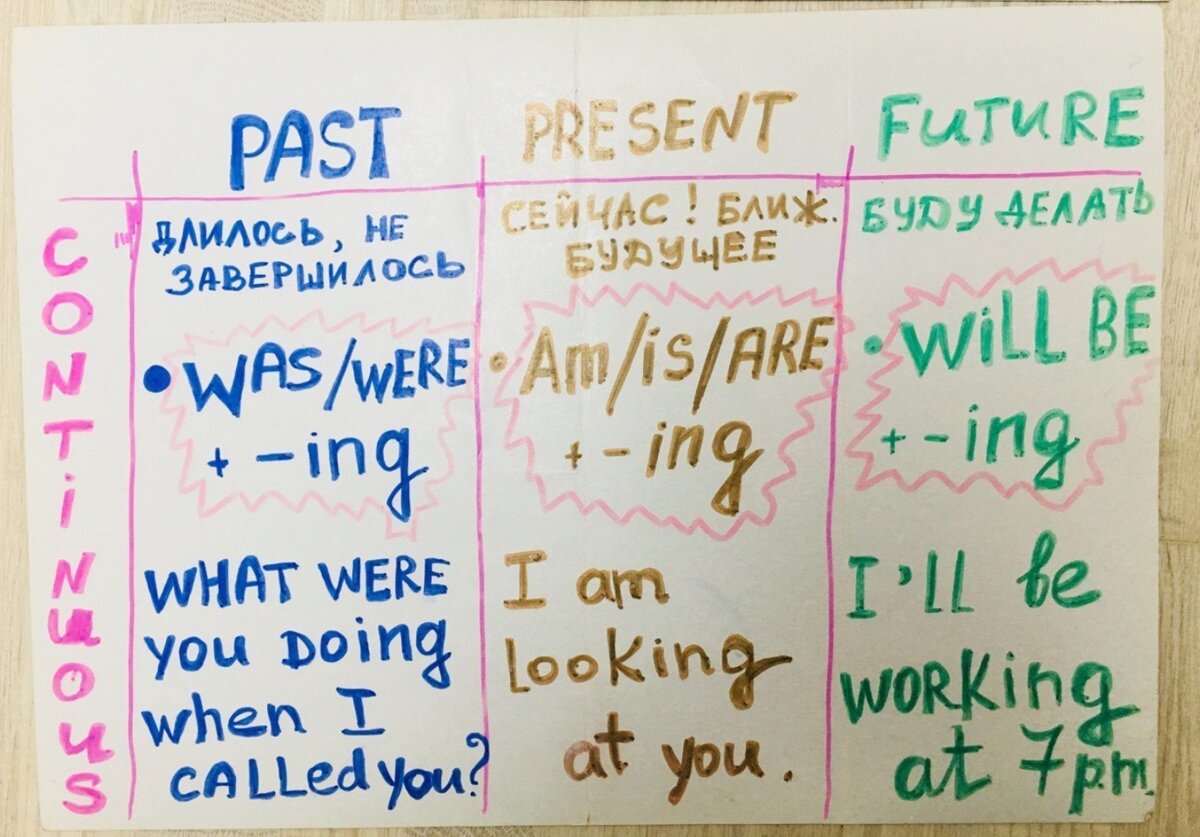 PAST
PRESENT
FUTURE
CONTINUOUS
ДЛИЛОСЬ, НЕ
ЗАВЕРШИЛОСЬ
• WAS/WERE
+ -ing
WHAT WERE
you DOING
when I
CALLed you?
СЕЙЧАС! БЛИЖ.
БУДУЩЕЕ
• Am/is/ARE
+ -ing
I am
Looking
at you.
БУДУ ДЕЛАТЬ
• WiLL BE
+ -ing
I'LL be
WORKing
at 7 p.m.